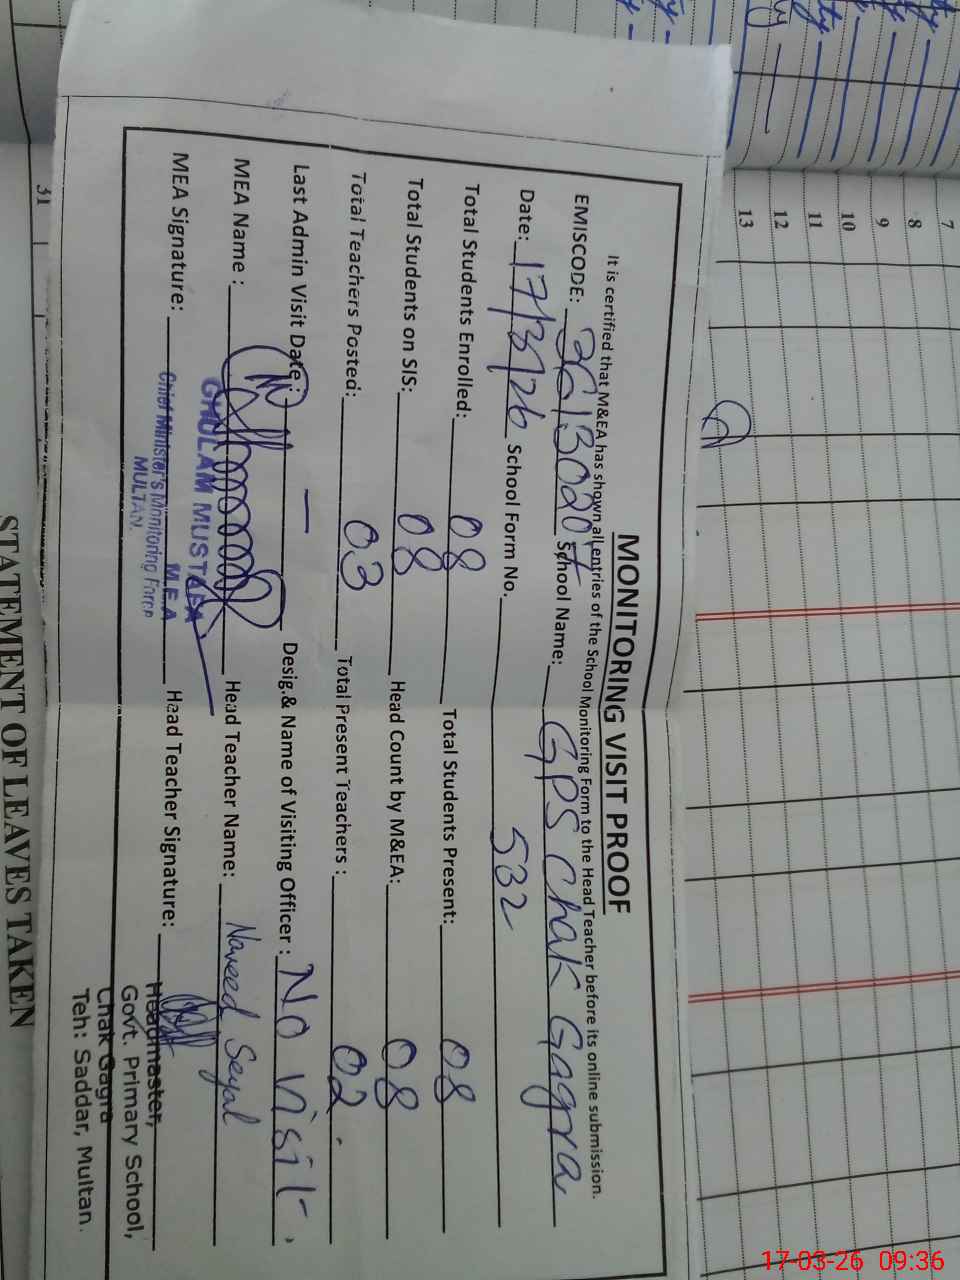 MONITORING VISIT PROOF
It is certified that M&EA has shown all entries of the School Monitoring Form to the Head Teacher before its online submission.
EMISCODE: 36130207 School Name: GPS Chak Gagra
Date: 17/3/26 School Form No. 532
Total Students Enrolled: 08 Total Students Present: 08
Total Students on SIS: 08 Head Count by M&EA: 08
Total Teachers Posted: 03 Total Present Teachers : 02
Last Admin Visit Date : — Desig.& Name of Visiting Officer : No Visit
MEA Name : Head Teacher Name: Naveed Seyal
GHULAM MUSTAFA
MEA Signature: M.E.A Head Teacher Signature:
Chief Minister's Monitoring Force
MULTAN.
Headmaster,
Govt. Primary School,
Chak Gagra
Teh: Saddar, Multan.
STATEMENT OF LEAVES TAKEN
31
7
8
9
10
11
12
13
17-03-26 09:36